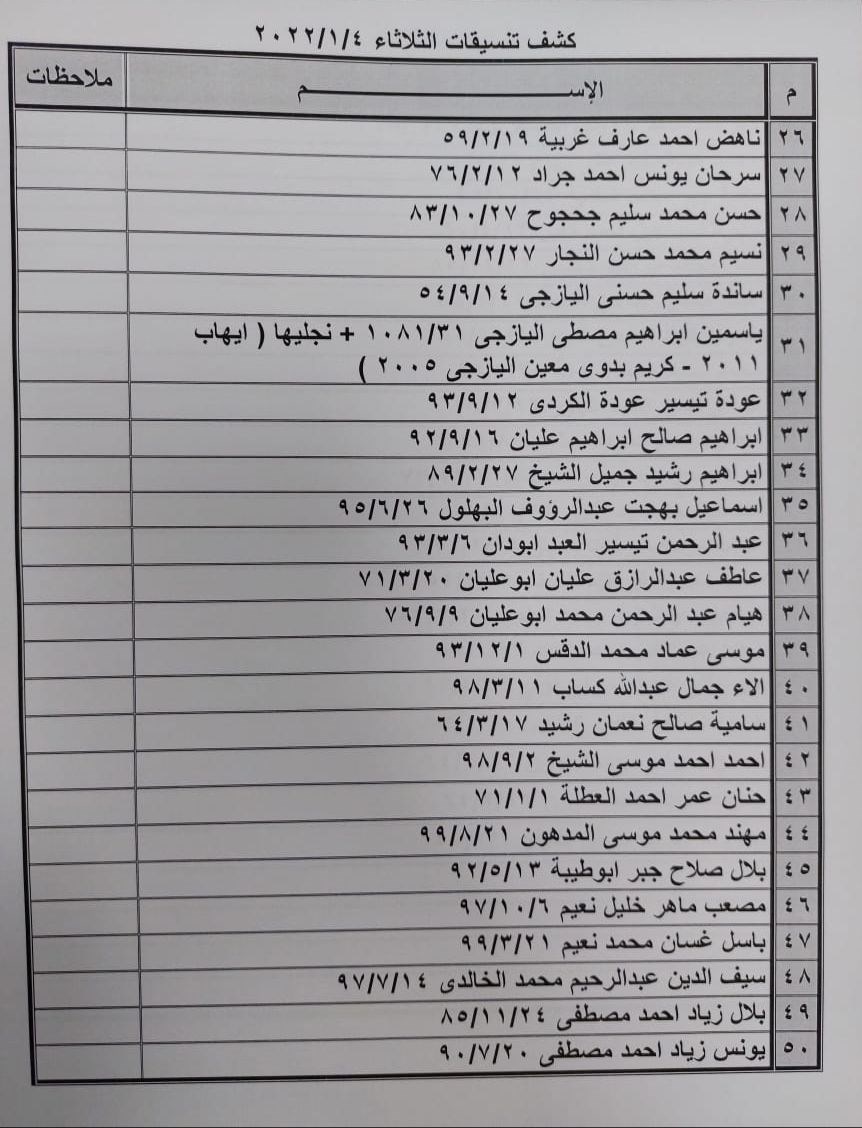 كشف تنسيقات الثلاثاء ٢٠٢٢/١/٤
م الإســـــــــم ملاحظات
٢٦ ناهض احمد عارف غربية ٥٩/٢/١٩
٢٧ سرحان يونس احمد جراد ٧٦/٢/١٢
٢٨ حسن محمد سليم جحجوح ٨٣/١٠/٢٧
٢٩ نسيم محمد حسن النجار ٩٣/٢/٢٧
٣٠ ساندة سليم حسنى اليازجى ٥٤/٩/١٤
٣١ ياسمين ابراهيم مصطى اليازجى ١٠٨١/٣١ + نجليها ( ايهاب
٢٠١١ - كريم بدوى معين اليازجى ٢٠٠٥ )
٣٢ عودة تيسير عودة الكردى ٩٣/٩/١٢
٣٣ ابراهيم صالح ابراهيم عليان ٩٢/٩/١٦
٣٤ ابراهيم رشيد جميل الشيخ ٨٩/٢/٢٧
٣٥ اسماعيل بهجت عبدالرؤوف البهلول ٩٥/٦/٢٦
٣٦ عبد الرحمن تيسير العبد ابودان ٩٣/٣/٦
٣٧ عاطف عبدالرازق عليان ابوعليان ٧١/٣/٢٠
٣٨ هيام عبد الرحمن محمد ابوعليان ٧٦/٩/٩
٣٩ موسى عماد محمد الدقس ٩٣/١٢/١
٤٠ الاء جمال عبدالله كساب ٩٨/٣/١١
٤١ سامية صالح نعمان رشيد ٦٤/٣/١٧
٤٢ احمد احمد موسى الشيخ ٩٨/٩/٢
٤٣ حنان عمر احمد العطلة ٧١/١/١
٤٤ مهند محمد موسى المدهون ٩٩/٨/٢١
٤٥ بلال صلاح جبر ابوطيبة ٩٢/٥/١٣
٤٦ مصعب ماهر خليل نعيم ٩٧/١٠/٦
٤٧ باسل غسان محمد نعيم ٩٩/٣/٢١
٤٨ سيف الدين عبدالرحيم محمد الخالدى ٩٧/٧/١٤
٤٩ بلال زياد احمد مصطفى ٨٥/١١/٢٤
٥٠ يونس زياد احمد مصطفى ٩٠/٧/٢٠